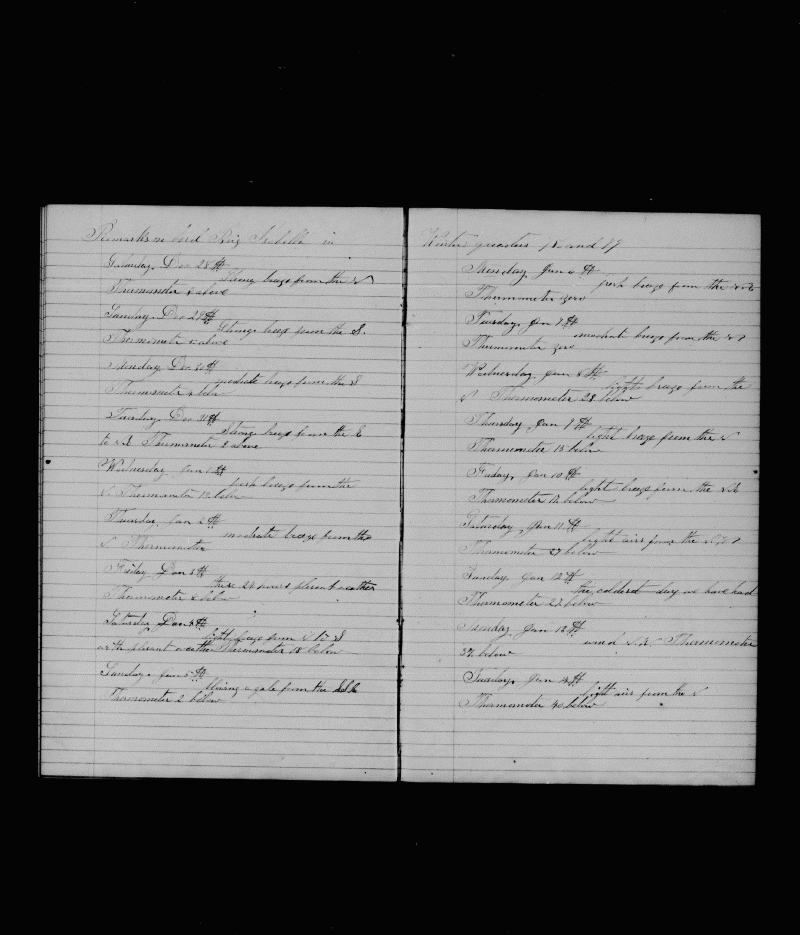 Remarks on bord Brig Isabella in
Saturday, Dec 28th
Strong breeze from the N
Thermometer above
Sunday, Dec 29th
Strong breeze from the S.
Thermometer above
Monday Dec 30th
moderate breeze from the S
Thermometer below
Tuesday, Dec 31th
Strong breeze from the E
to Thermometer 2 above
Wednesday Jan 1th
fresh breeze from the
N Thermometer 12 below
Thursday Jan 2th
moderate breeze from the
N Thermometer
Friday Jan 3th
these 24 hours pleasent weather
Thermometer below
Saturday Jan 4th
light breeze from N to S
with plesent weather Thermometer 18 below
Sunday. Jan 5th
Blowing a gale from the SSE
Thermometer 2 below
Winter quarters 18 and 79
Monday Jan 6th
fresh breeze from the
Thermometer zero
Tuesday, Jan 7th
moderate breeze from the
Thermometer zero
Wednesday, Jan 8th
light breeze from the
N Thermometer 28 below
Thursday Jan 9th
light breeze from the N
Thermometer 18 below
Friday, Jan 10th
light breeze from the
Thermometer 12 below
Saturday, Jan 11th
light airs from the
Thermometer 27 below
Sunday Jan 12th
the coldest day we have had
Thermometer 22 below
Monday Jan 13th
wind Thermometer
below
Tuesday, Jan 14th
light airs from the N
Thermometer 40 below